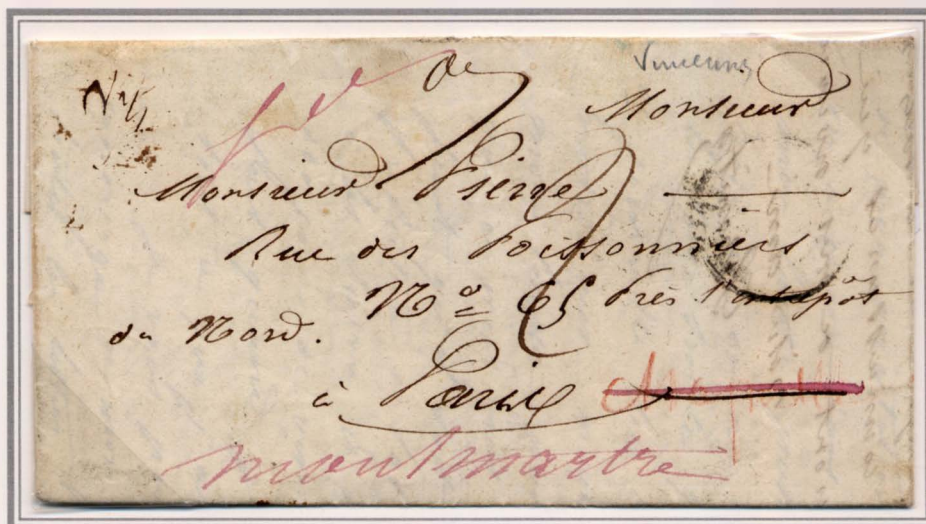 Vincennes
Monsieur
Monsieur Pierre
Rue des Poissonniers
Nº 65 Près l'entrepôt
du Nord.
à Paris
montmartre